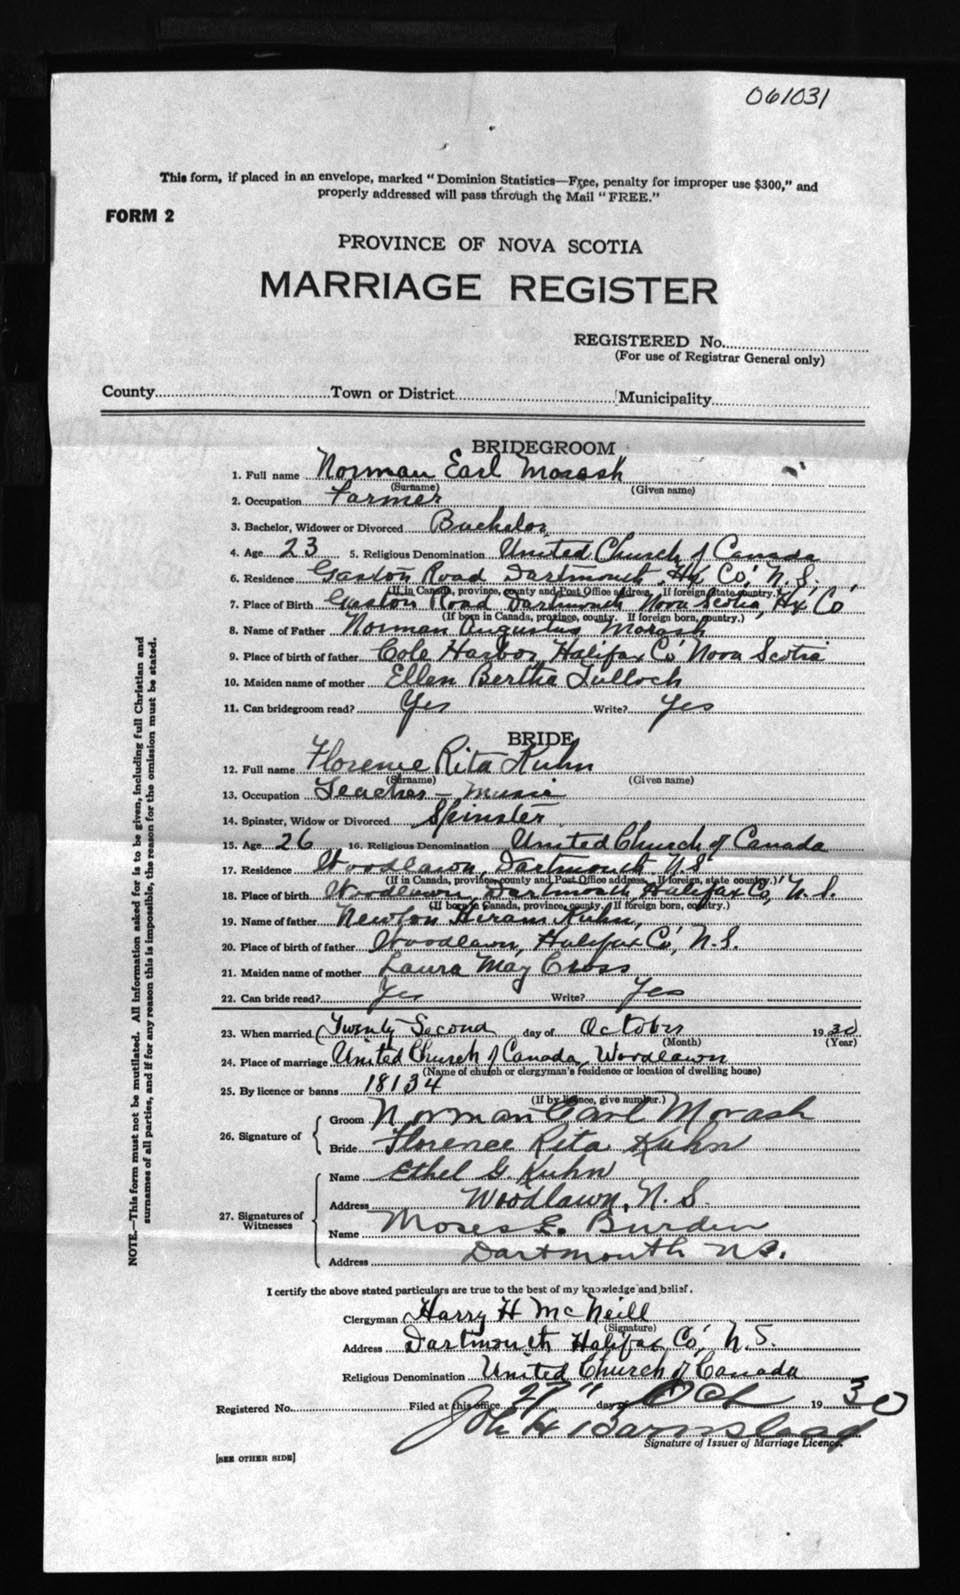 061031
This form, if placed in an envelope, marked "Dominion Statistics—Free, penalty for improper use $300," and
properly addressed will pass through the Mail "FREE."
FORM 2
PROVINCE OF NOVA SCOTIA
MARRIAGE REGISTER
REGISTERED No.
(For use of Registrar General only)
County Town or District Municipality
BRIDEGROOM
1. Full name Norman Earl Morash
(Surname) (Given name)
2. Occupation Farmer
3. Bachelor, Widower or Divorced Bachelor
4. Age 23 5. Religious Denomination United Church of Canada
6. Residence Gaston Road Dartmouth, Hx Co, N.S.
(If in Canada, province, county and Post Office address. If foreign state country.)
7. Place of Birth Gaston Road Dartmouth Nova Scotia, Hx Co
(If born in Canada, province, county. If foreign born, country.)
8. Name of Father Norman Augustus Morash
9. Place of birth of father Cole Harbor, Halifax Co Nova Scotia
10. Maiden name of mother Ellen Bertha Tulloch
11. Can bridegroom read? Yes Write? Yes
BRIDE
12. Full name Florence Rita Kuhn
(Surname) (Given name)
13. Occupation Teacher - Music
14. Spinster, Widow or Divorced Spinster
15. Age 26 16. Religious Denomination United Church of Canada
17. Residence Woodlawn, Dartmouth N.S
(If in Canada, province, county and Post Office address. If foreign, state country.)
18. Place of birth Woodlawn, Dartmouth, Halifax Co, N.S.
(If born in Canada, province, county. If foreign born, country.)
19. Name of father Newton Hiram Kuhn,
20. Place of birth of father Woodlawn, Halifax Co, N.S.
21. Maiden name of mother Laura May Cross
22. Can bride read? Yes Write? Yes
23. When married Twenty Second day of October 1930
(Month) (Year)
24. Place of marriage United Church of Canada, Woodlawn
(Name of church or clergyman's residence or location of dwelling house)
25. By licence or banns 18134
(If by licence, give number.)
26. Signature of Groom Norman Earl Morash
Bride Florence Rita Kuhn
27. Signatures of Witnesses Name Ethel G. Kuhn
Address Woodlawn, N.S.
Name Moses E. Burden
Address Dartmouth N.S.
I certify the above stated particulars are true to the best of my knowledge and belief.
Clergyman Harry H McNeill
(Signature)
Address Dartmouth Halifax Co, N.S.
Religious Denomination United Church of Canada
Registered No. Filed at this office 27" day Oct 1930
John H Barnstead
Signature of Issuer of Marriage Licence.
[SEE OTHER SIDE]
NOTE.—This form must not be mutilated. All information asked for is to be given, including full Christian and
surnames of all parties, and if for any reason this is impossible, the reason for the omission must be stated.